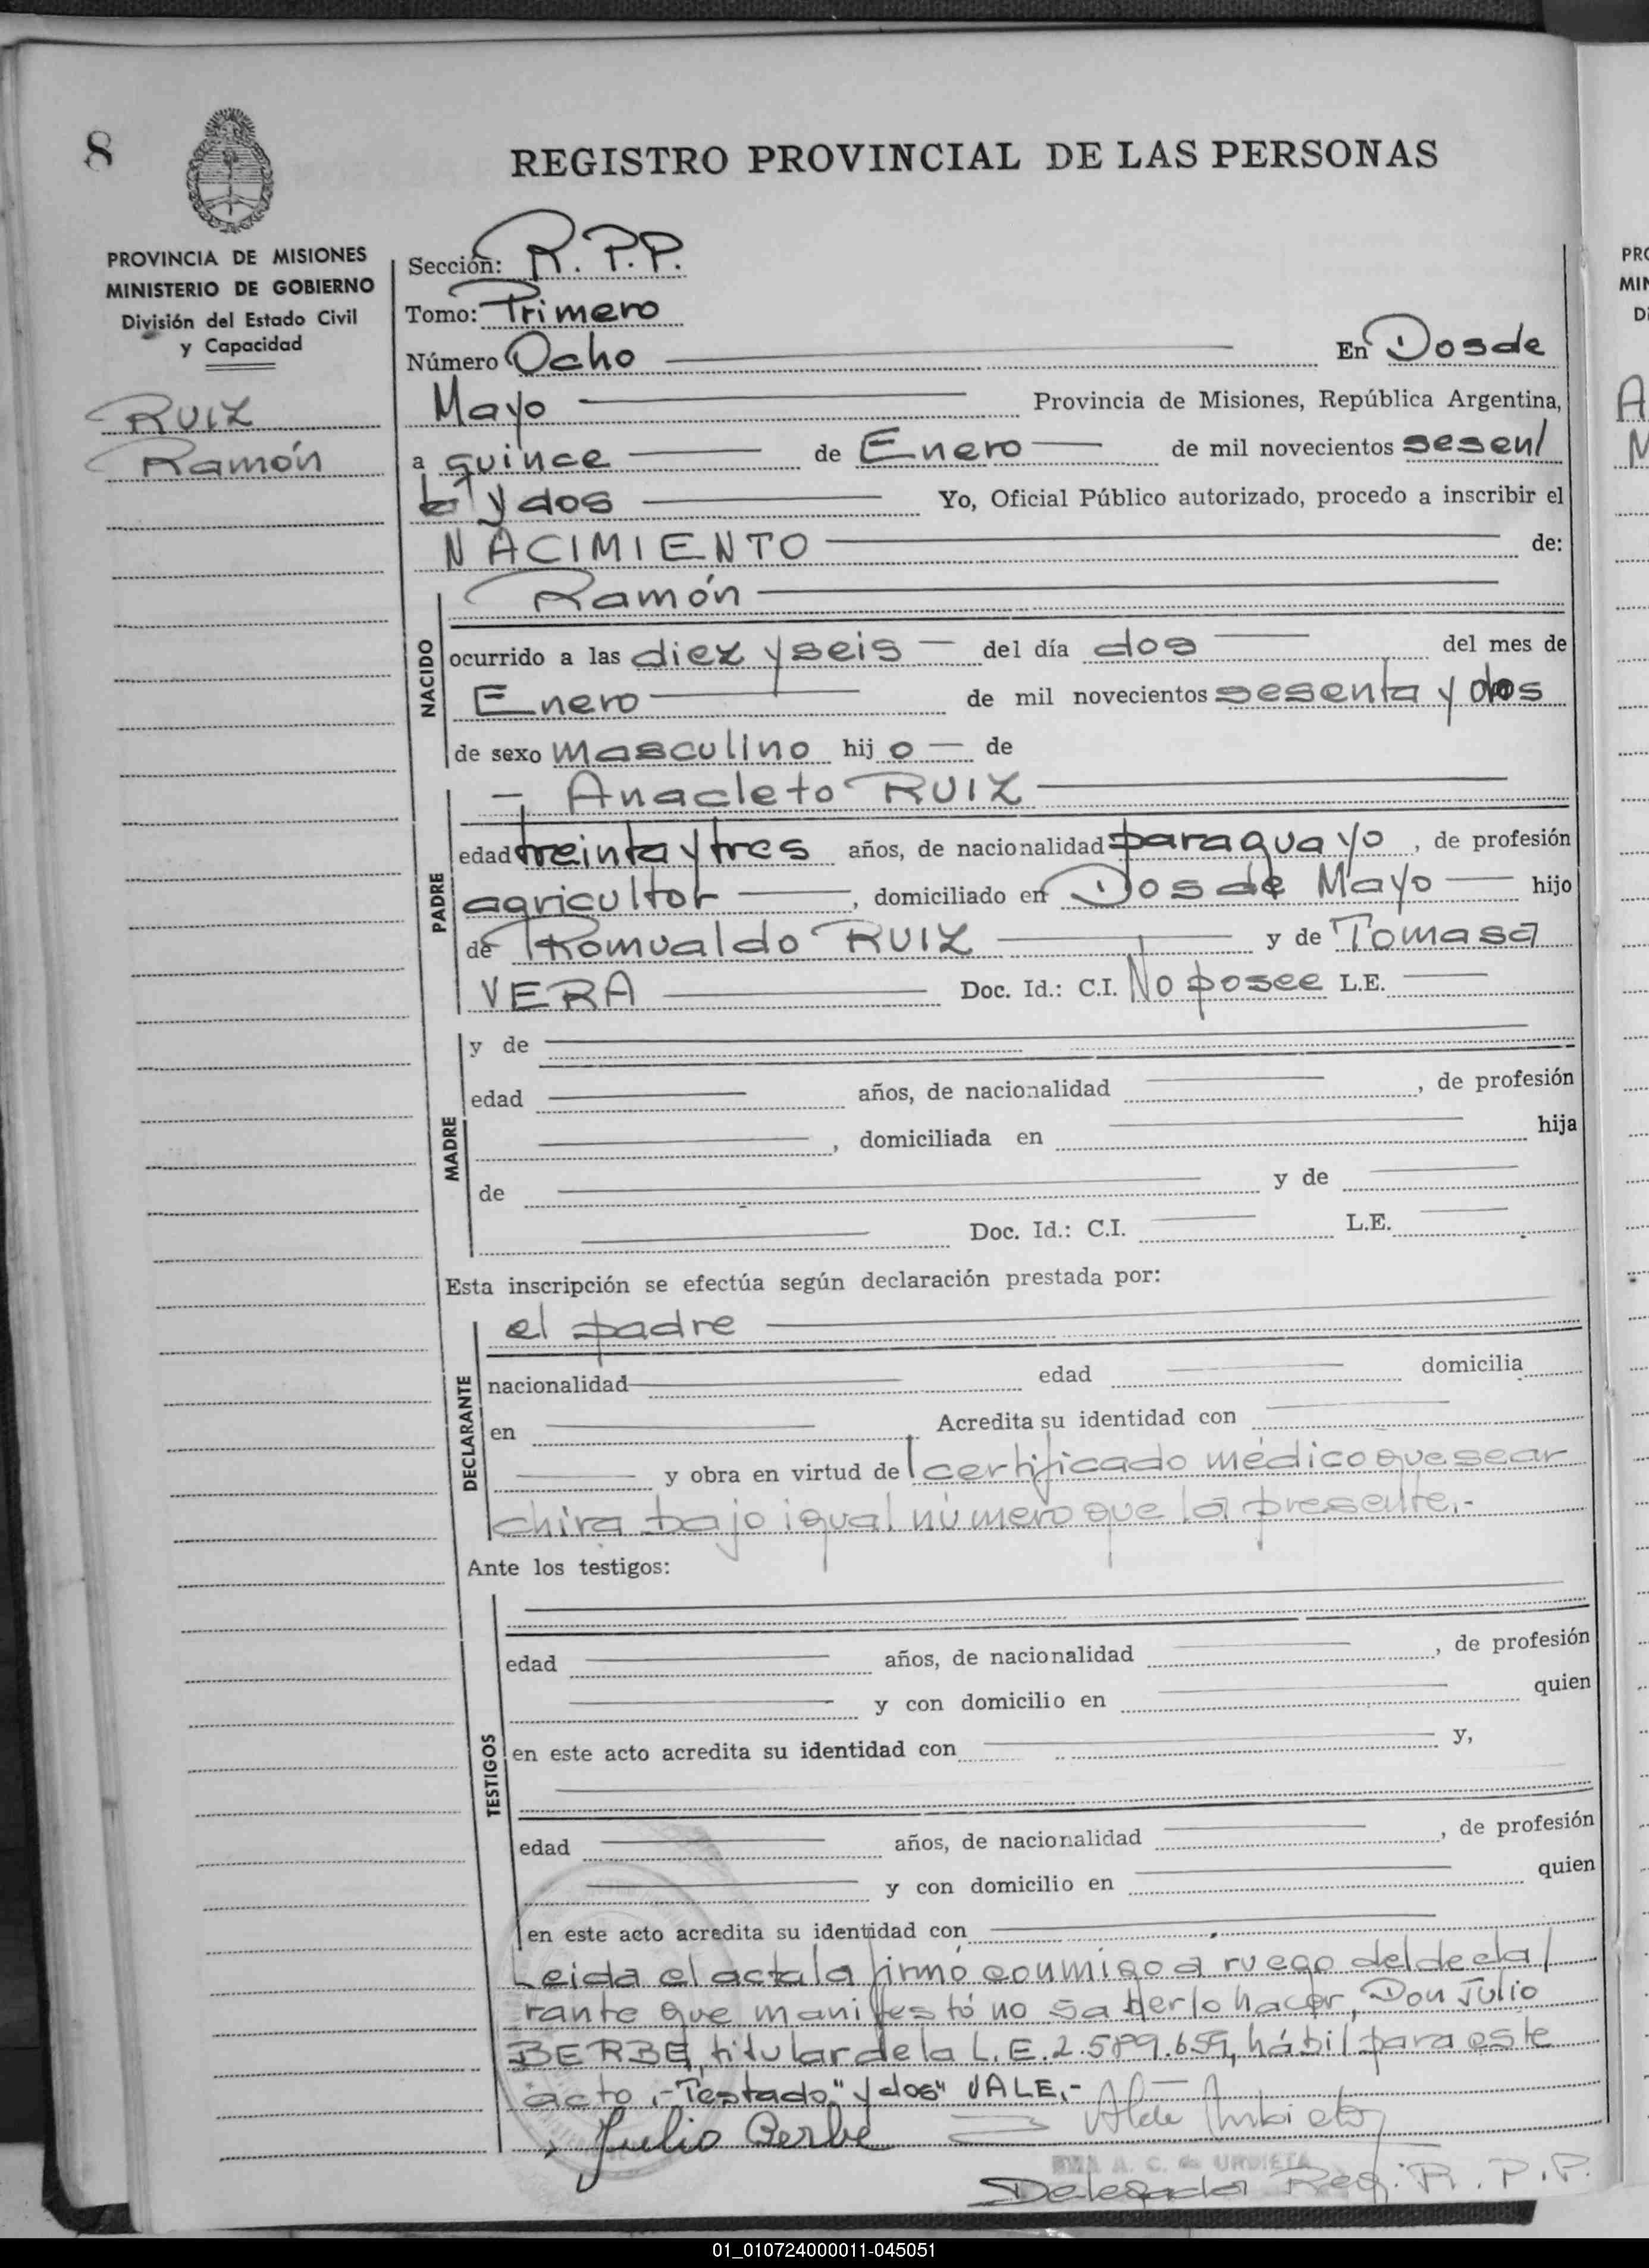 8
REGISTRO PROVINCIAL DE LAS PERSONAS
PROVINCIA DE MISIONES
MINISTERIO DE GOBIERNO
División del Estado Civil
y Capacidad
RUIZ
Ramón
Sección: R. P. P.
Tomo: Primero
Número Ocho En Dos de
Mayo Provincia de Misiones, República Argentina,
a quince de Enero de mil novecientos sesen/
ta y dos Yo, Oficial Público autorizado, procedo a inscribir el
NACIMIENTO de:
Ramón
NACIDO
ocurrido a las diez y seis del día dos del mes de
Enero de mil novecientos sesenta y dos
de sexo masculino hijo de
Anacleto RUIZ
PADRE
edad treinta y tres años, de nacionalidad paraguayo, de profesión
agricultor, domiciliado en Dos de Mayo hijo
de Romualdo RUIZ y de Tomasa
VERA Doc. Id.: C.I. No posee L.E.
MADRE
y de
edad años, de nacionalidad , de profesión
, domiciliada en hija
de y de
Doc. Id.: C.I. L.E.
Esta inscripción se efectúa según declaración prestada por:
el padre
DECLARANTE
nacionalidad edad domicilia
en Acredita su identidad con
y obra en virtud del certificado médico que se ar
chiva bajo igual número que la presente.-
Ante los testigos:
TESTIGOS
edad años, de nacionalidad , de profesión
y con domicilio en quien
en este acto acredita su identidad con y,
edad años, de nacionalidad , de profesión
y con domicilio en quien
en este acto acredita su identidad con
Leida el acta la firmó conmigo a ruego del decla/
rante que manifestó no saberlo hacer, Don Julio
BERBE, titular de la L.E. 2.589.659, hábil para este
acto.- Testado "y dos" VALE.-
Julio Berbe
A. C. de URBIETA
Delegada Reg. R. P. P.
PRO
MIN
Di
01_010724000011-045051